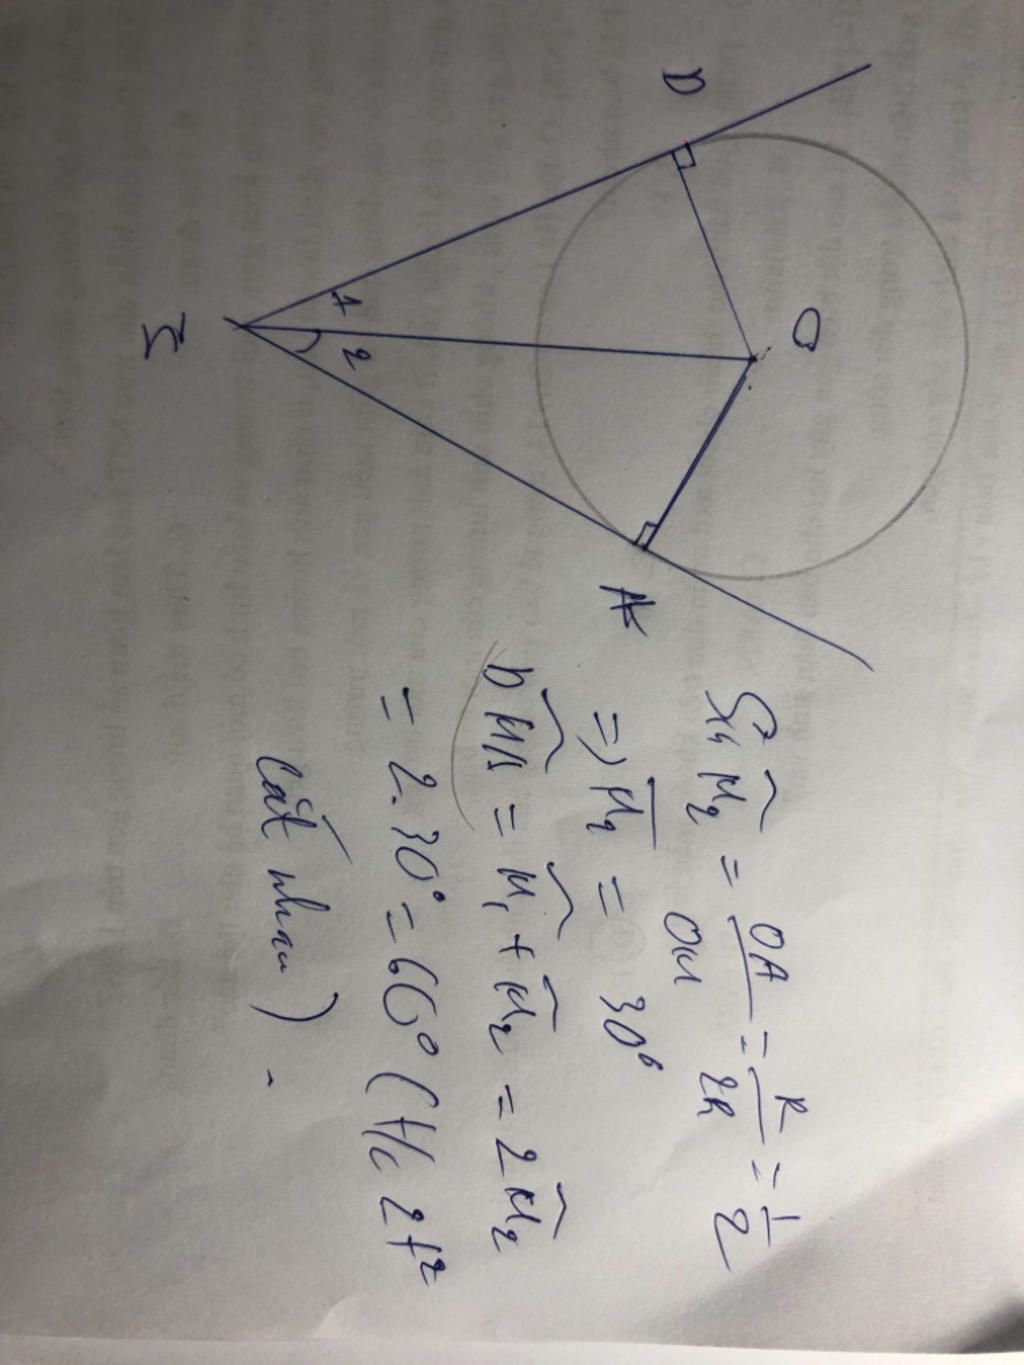 D
O
1
2
M
A
Sin M̂₂ = OA/OM = R/2R = 1/2
=> M̂₂ = 30°
DMA = M̂₁ + M̂₂ = 2M̂₂
= 2.30° = 60° (t/c 2 t²
cắt nhau).